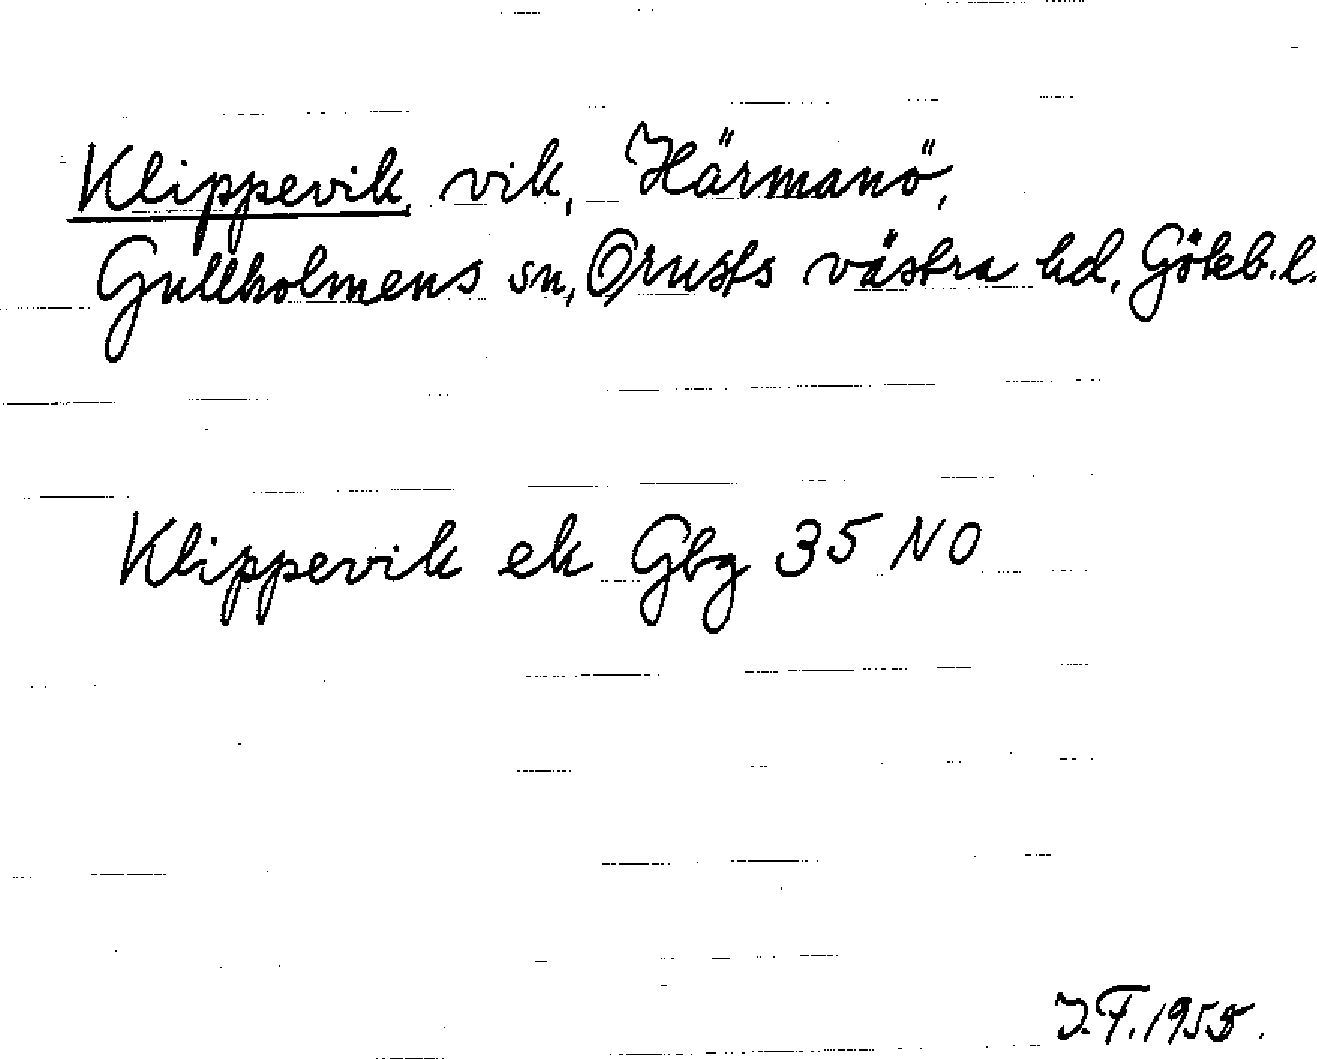 Klippevik, vik, Härmanö,
Gullholmens sn, Orusts västra hd, Göteb. l.
Klippevik ek Gbg 35 NO
J.F. 1955.